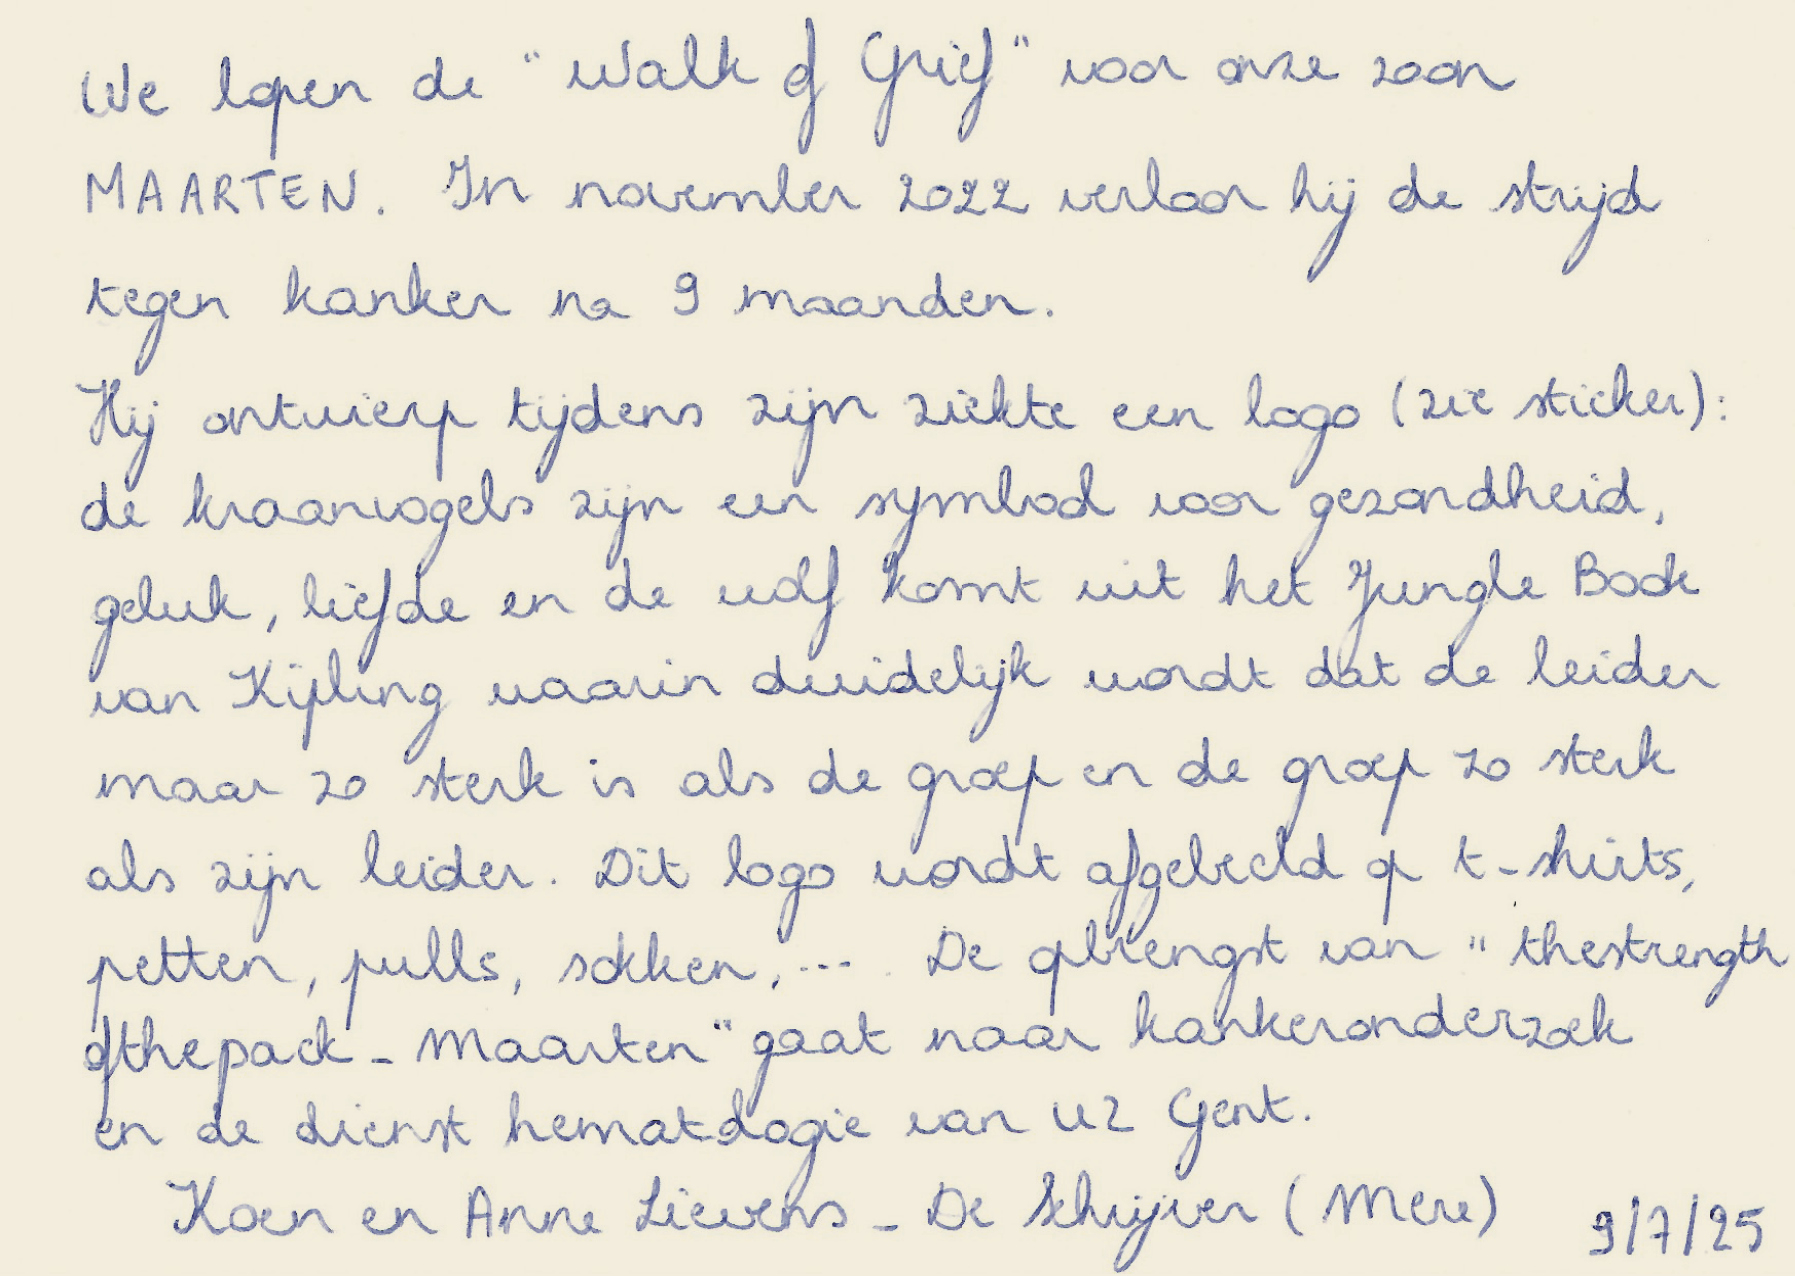 We lopen de "Walk of Grief" voor onze zoon
MAARTEN. In november 2022 verloor hij de strijd
tegen kanker na 9 maanden.
Hij ontwierp tijdens zijn ziekte een logo (zie sticker):
de kraanvogels zijn een symbool voor gezondheid,
geluk, liefde en de wolf komt uit het Jungle Book
van Kipling waarin duidelijk wordt dat de leider
maar zo sterk is als de groep en de groep zo sterk
als zijn leider. Dit logo wordt afgebeeld op t-shirts,
petten, pulls, sokken, ... . De opbrengst van "thestrength
ofthepack - Maarten" gaat naar kankeronderzoek
en de dienst hematologie van UZ Gent.
Koen en Anne Lievens - De Schrijver (Mere) 9/7/25